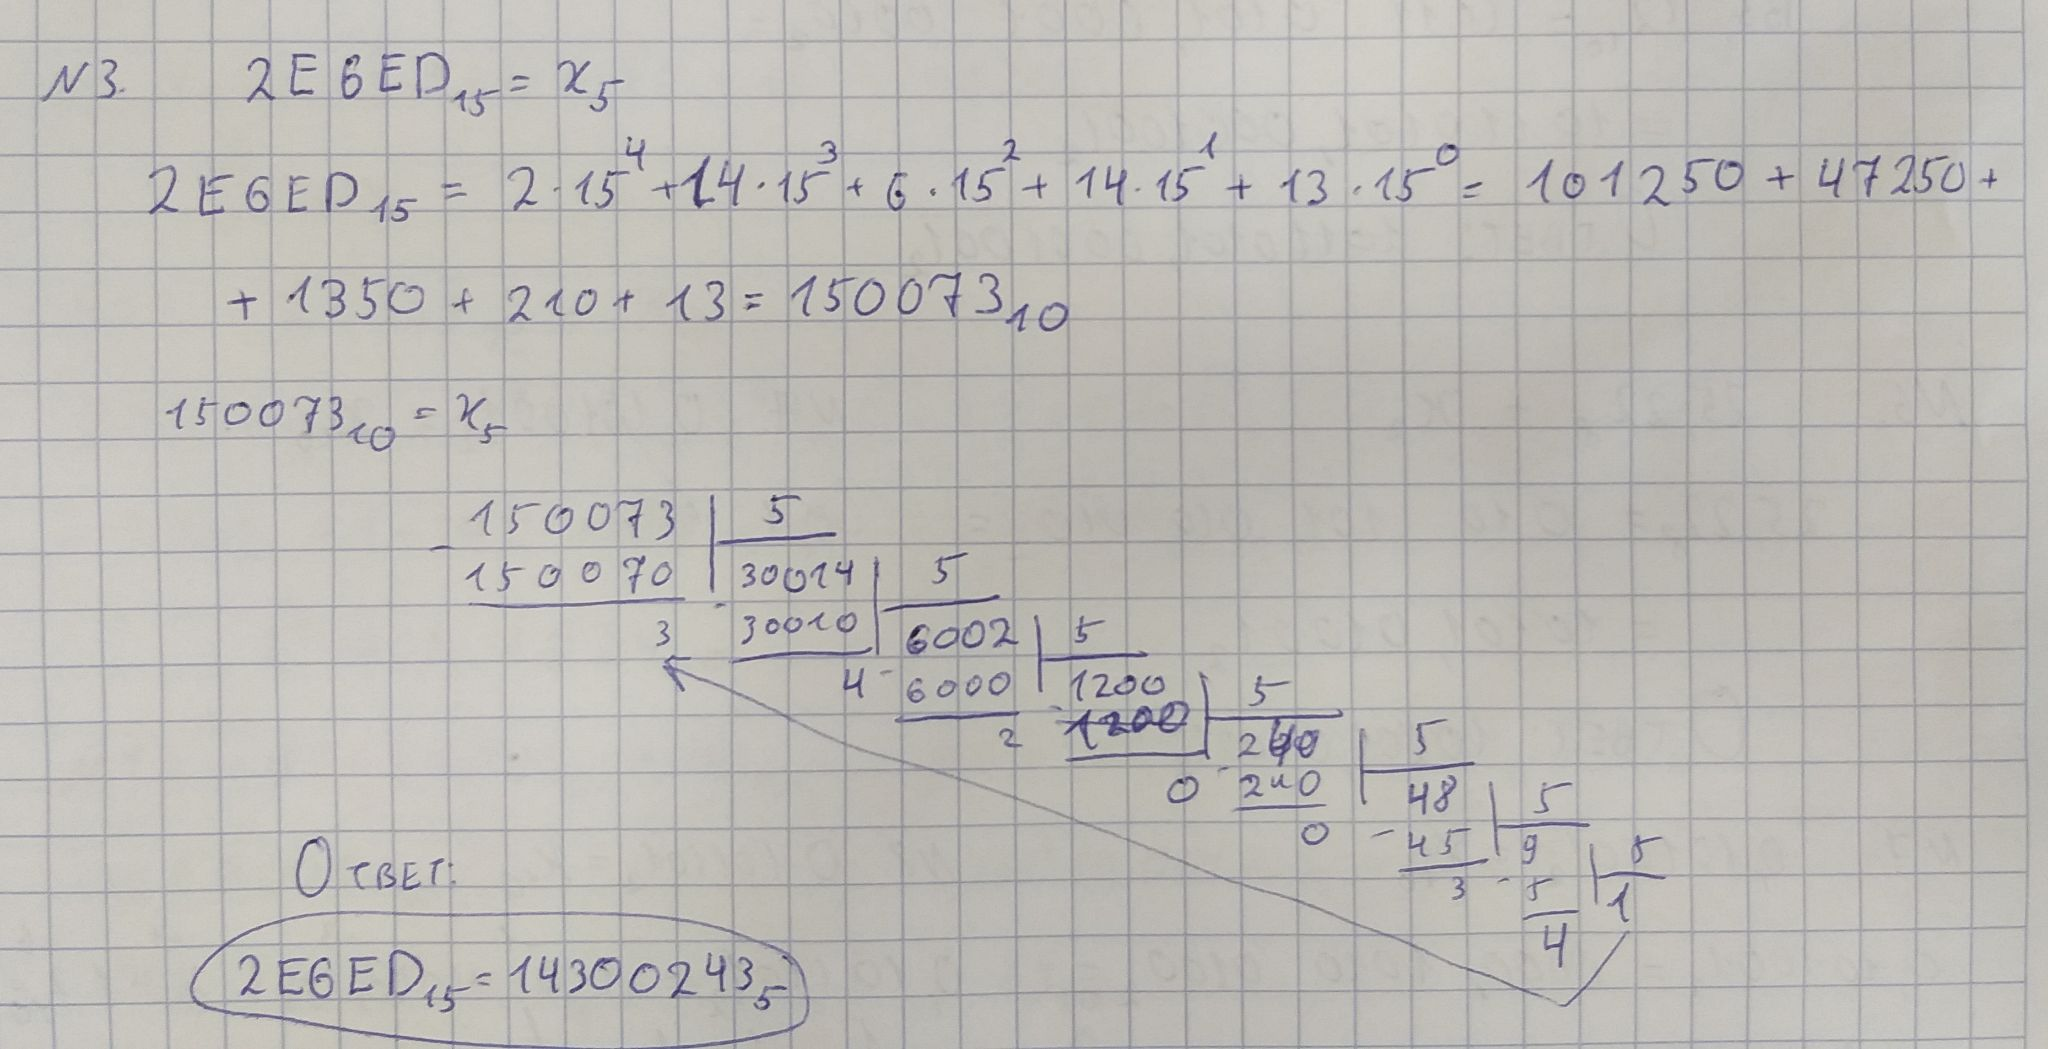 N3. 2E6ED₁₅ = x₅
2E6ED₁₅ = 2·15⁴ + 14·15³ + 6·15² + 14·15¹ + 13·15⁰ = 101250 + 47250 +
+ 1350 + 210 + 13 = 150073₁₀
150073₁₀ = x₅
150073 | 5
- 150070 | 30014 | 5
3 - 30010 | 6002 | 5
4 - 6000 | 1200 | 5
2 - 1200 | 240 | 5
0 - 240 | 48 | 5
0 - 45 | 9 | 5
3 - 5 | 1
4
Ответ:
2E6ED₁₅ = 14300243₅